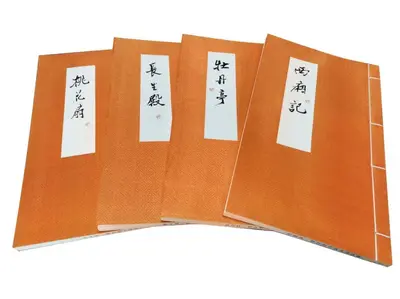 桃花扇
長生殿
牡丹亭
西廂記